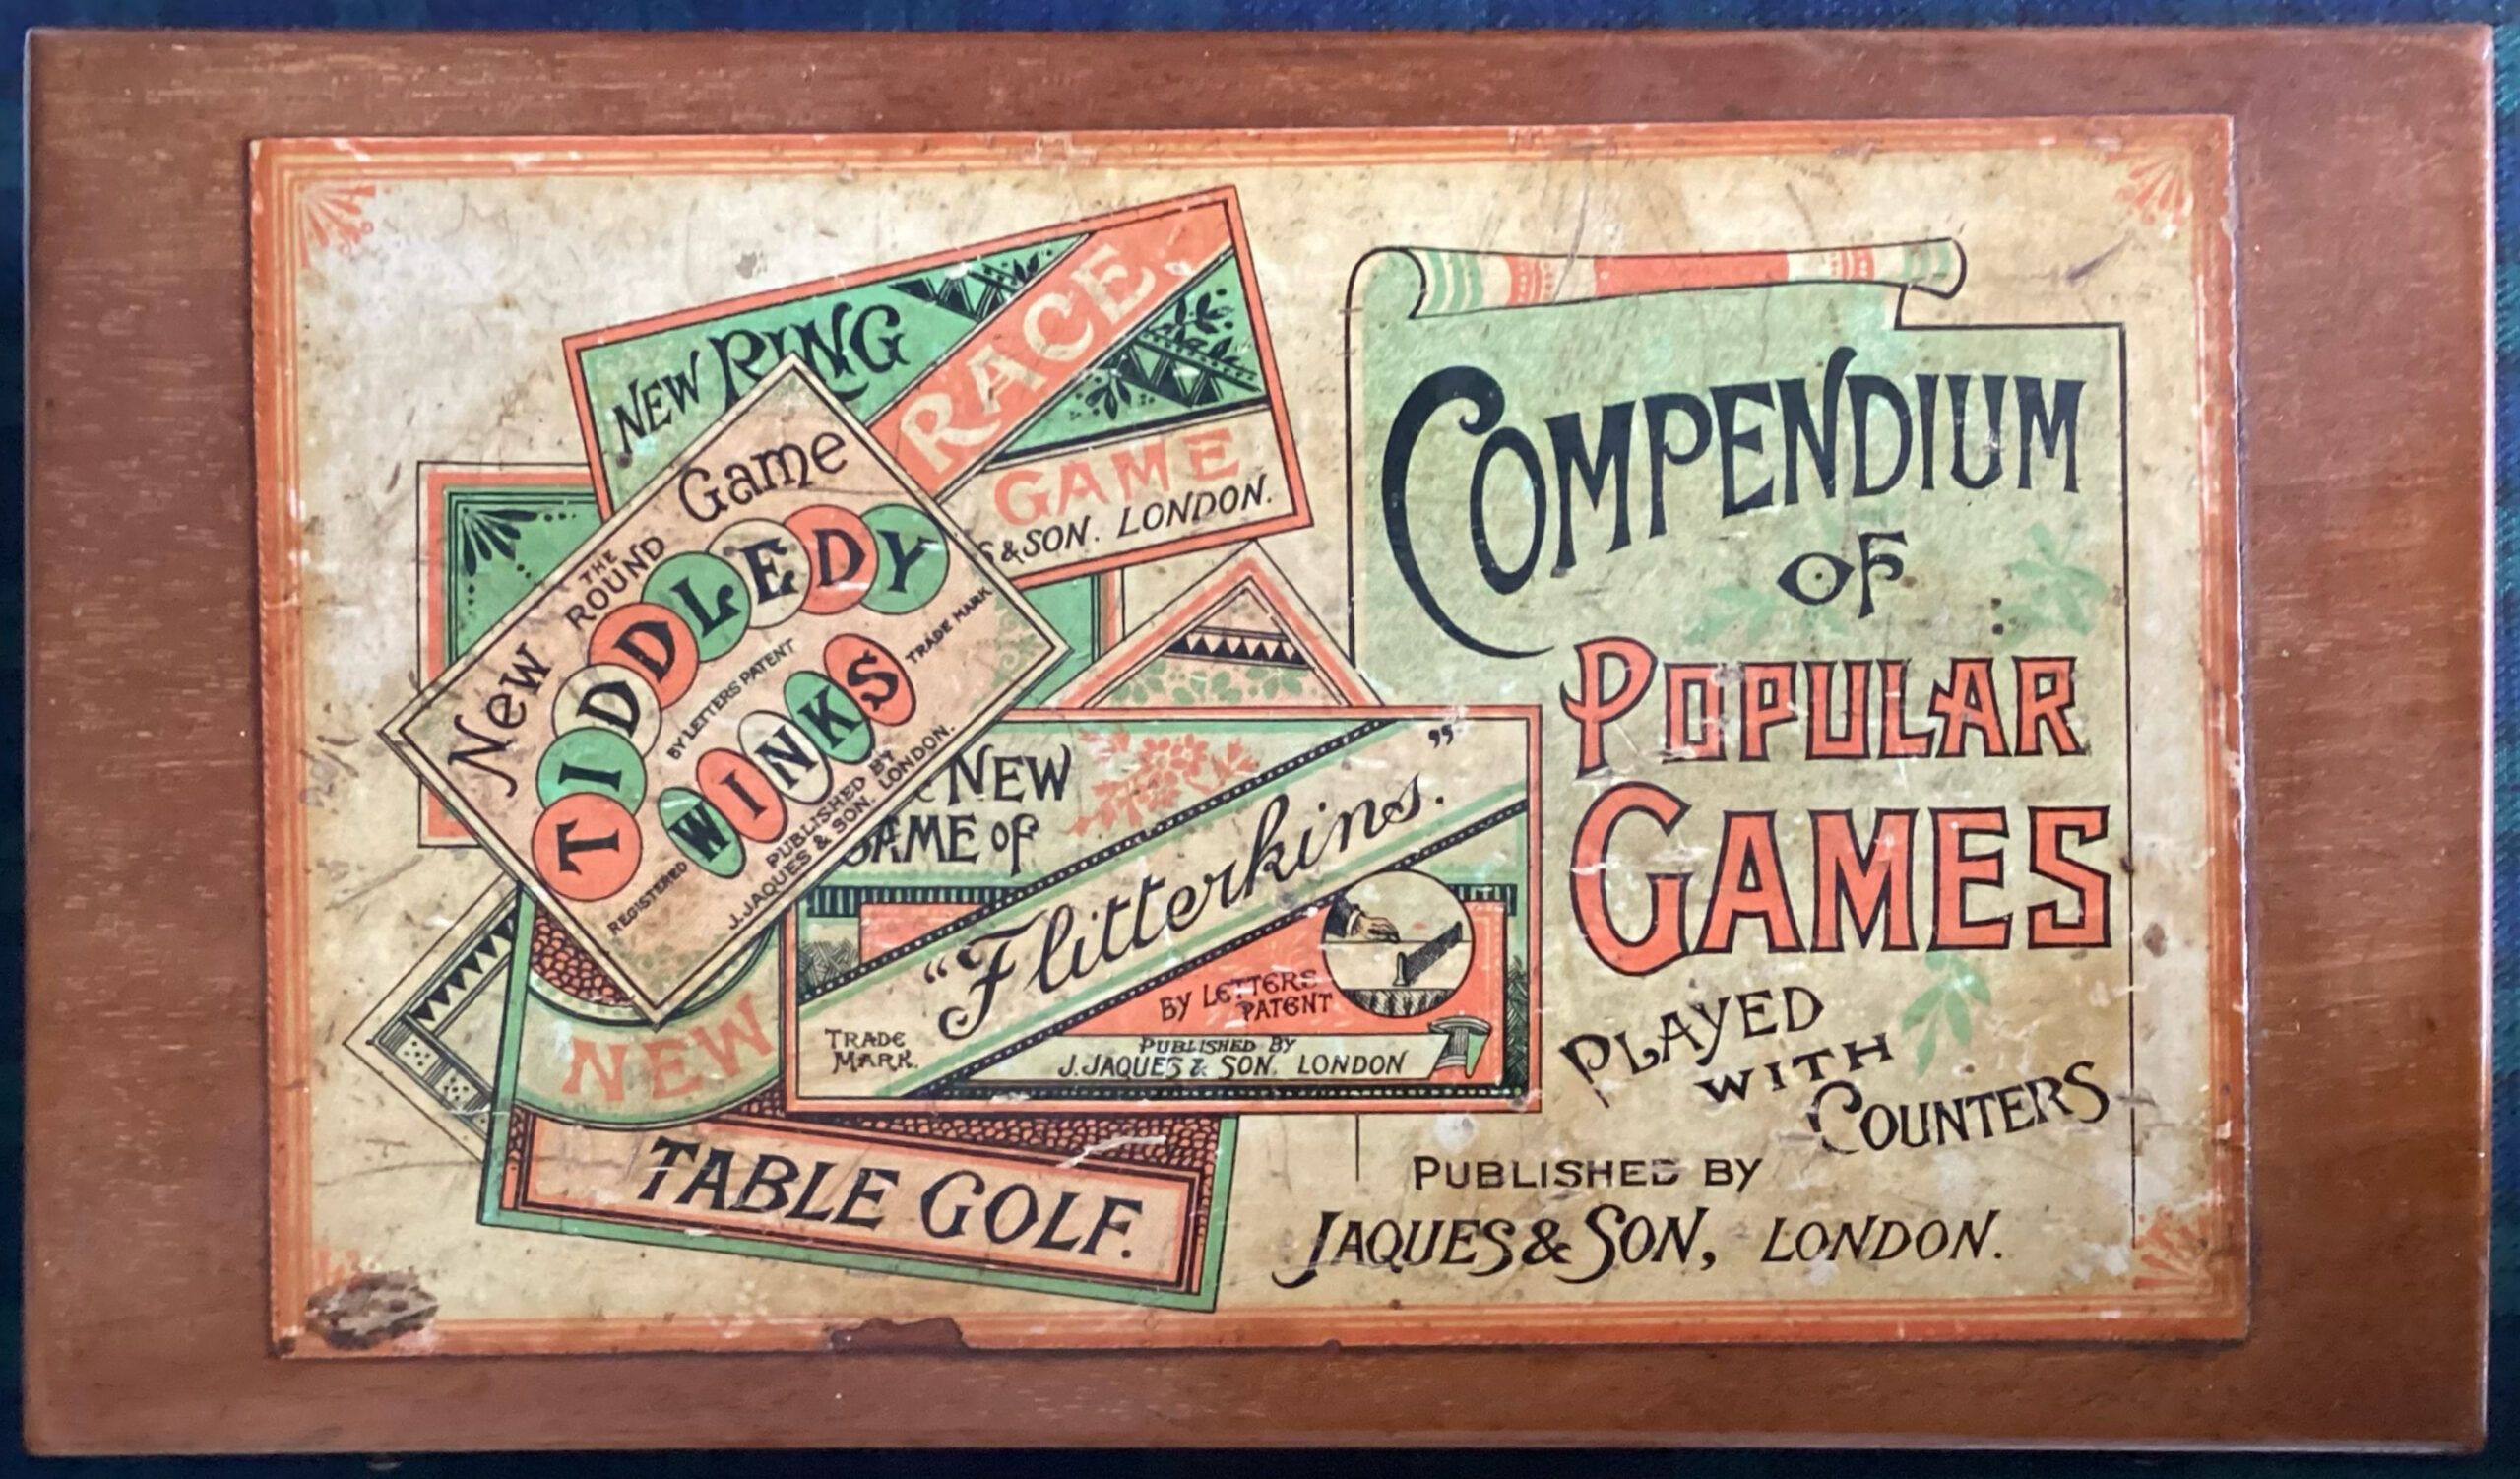 NEW RING
RACE.
GAME
& SON. LONDON.
New
THE
ROUND
Game
TIDDLEDY
BY LETTERS PATENT
WINKS
REGISTERED
TRADE MARK
PUBLISHED BY
J. JAQUES & SON. LONDON.
NEW
GAME OF
"Flitterkins."
BY LETTERS
PATENT
TRADE
MARK.
PUBLISHED BY
J. JAQUES & SON. LONDON
NEW
TABLE GOLF.
COMPENDIUM
OF
POPULAR
GAMES
PLAYED
WITH
COUNTERS
PUBLISHED BY
JAQUES & SON, LONDON.